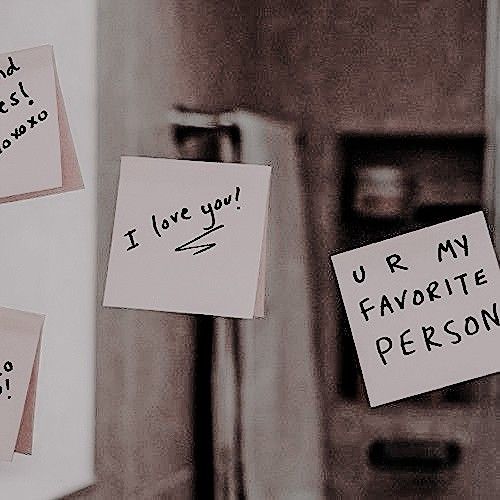 nd
es!
oxoxo
I love you!
U R MY
FAVORITE
PERSON
o
!